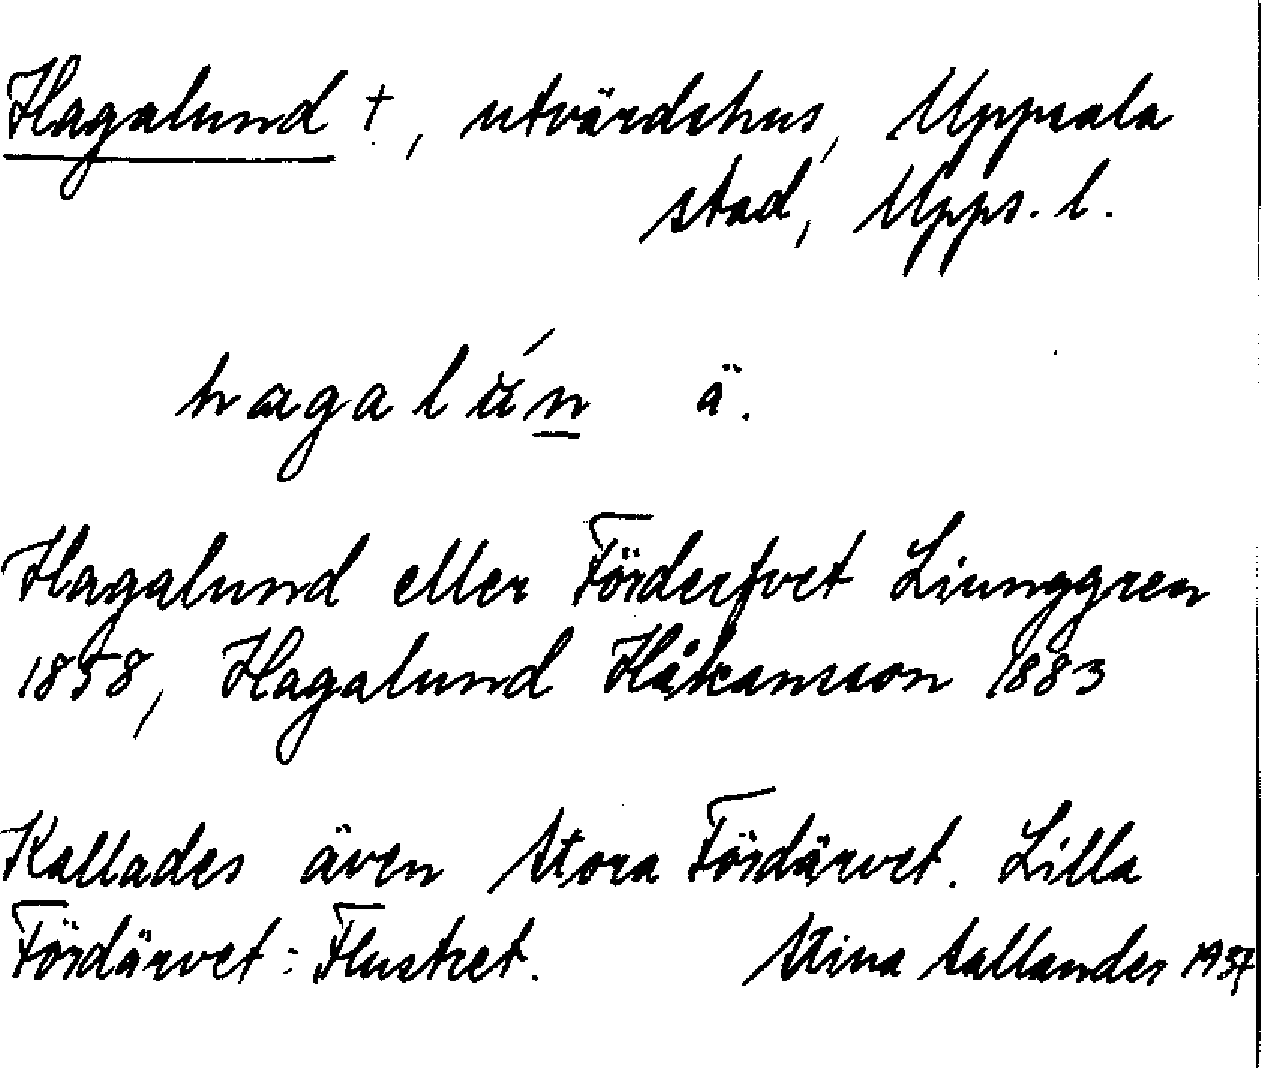 Hagalund †, utvärdshus, Uppsala
stad, Upps. l.
hagalún ä.
Hagalund eller Förderfvet Liunggren
1858, Hagalund Håkansson 1883
Kallades även Stora Fördärvet. Lilla
Fördärvet: Flustret. Stina Sallander 1937